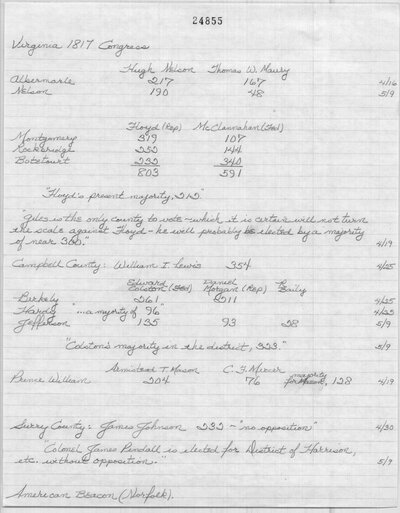 24855
Virginia 1817 Congress
Hugh Nelson Thomas W. Maury
Albermarle 217 167 4/16
Nelson 190 48 5/9
Floyd (Rep) McClannahan (Fed)
Montgomery 319 107
Rockbridge 252 144
Botetourt 232 340
803 591
"Floyd's present majority, 212."
"Giles is the only county to vote - which it is certain will not turn
the scale against Floyd - he will probably be elected by a majority
of near 300." 4/19
Campbell County: William I. Lewis 354 4/25
Edward Colston (Fed) Daniel Morgan (Rep) Baily
Berkely 261 211 4/25
Hardy "...a majority of 96" 4/25
Jefferson 135 93 28 5/9
"Colston's majority in the district, 323." 5/9
Armistead T. Mason C. F. Mercer
Prince William 204 76 majority for Mason, 128 4/19
Surry County: James Johnson 232 - "no opposition" 4/30
"Colonel James Pindall is elected for District of Harrison,
etc. without opposition." 5/9
American Beacon (Norfolk).